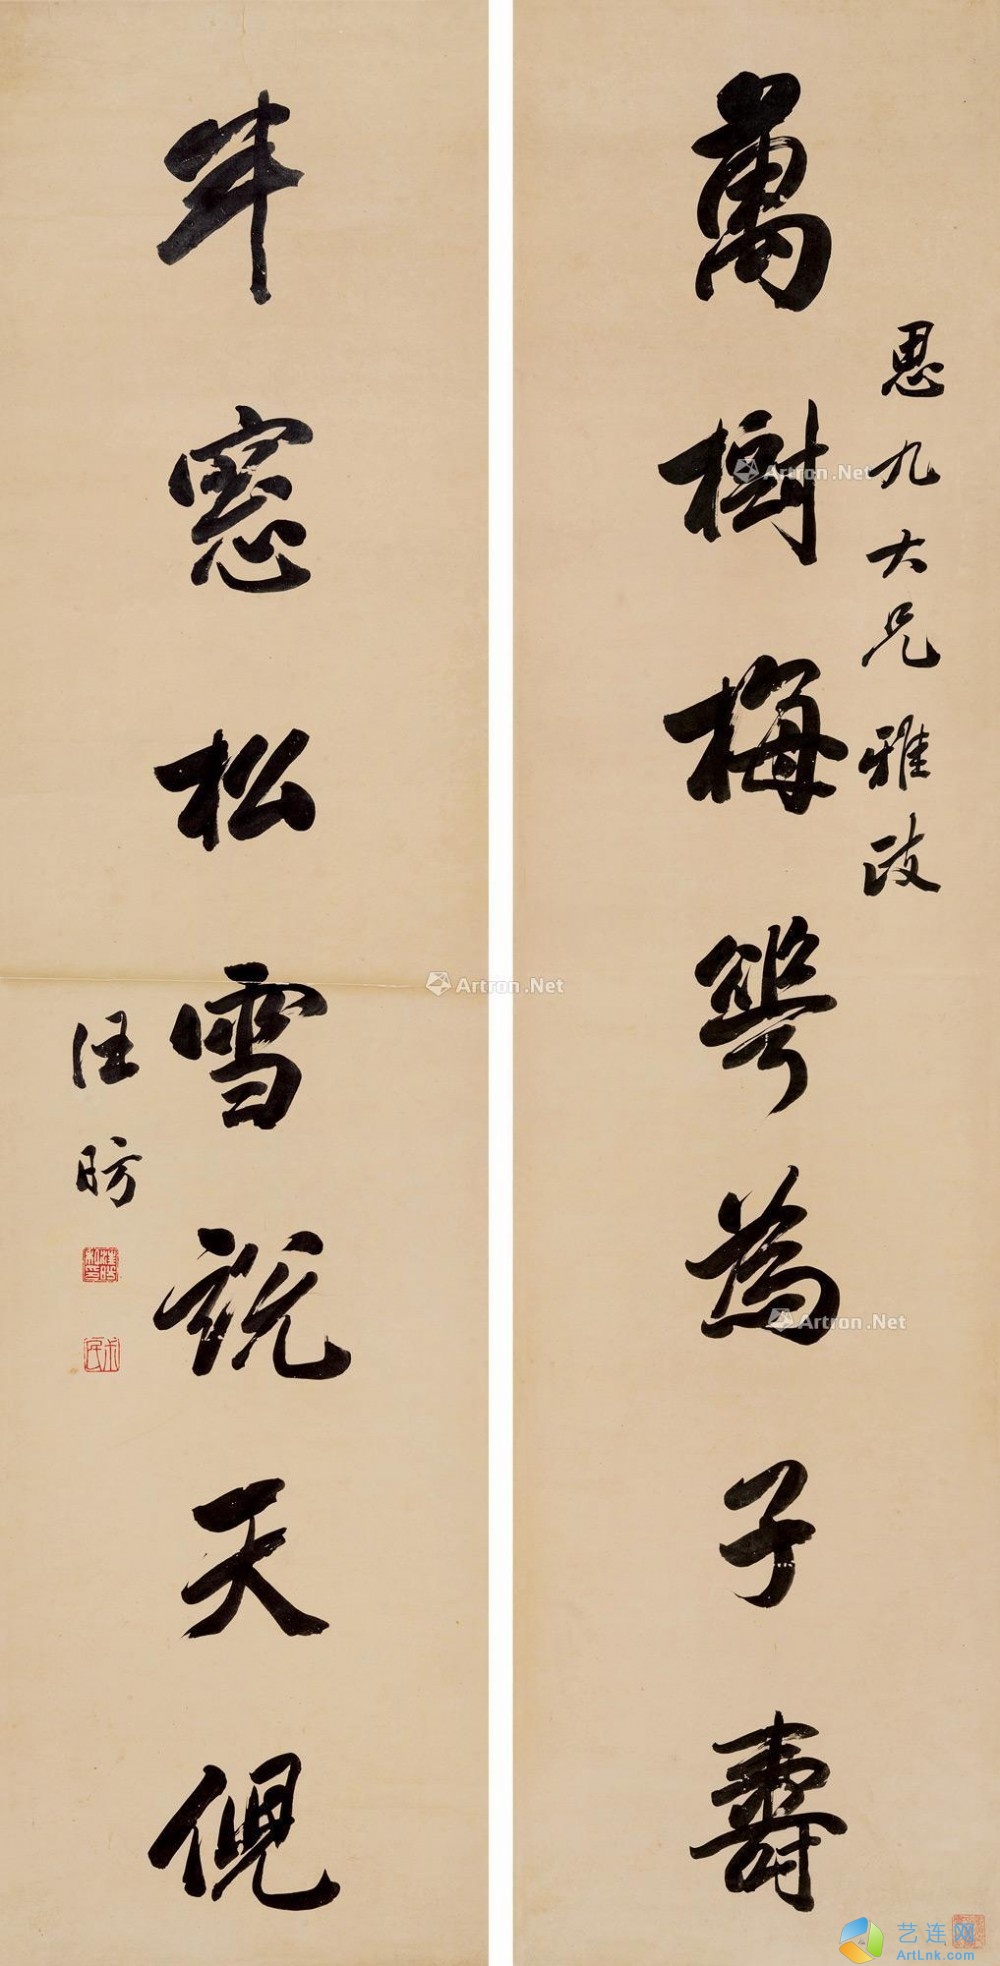 萬樹梅華為子壽
思九大兄雅政
半窓松雪説天倪
汪昉
Artron.Net
Artron.Net
Artron.Net
艺连网
ArtLnk.com